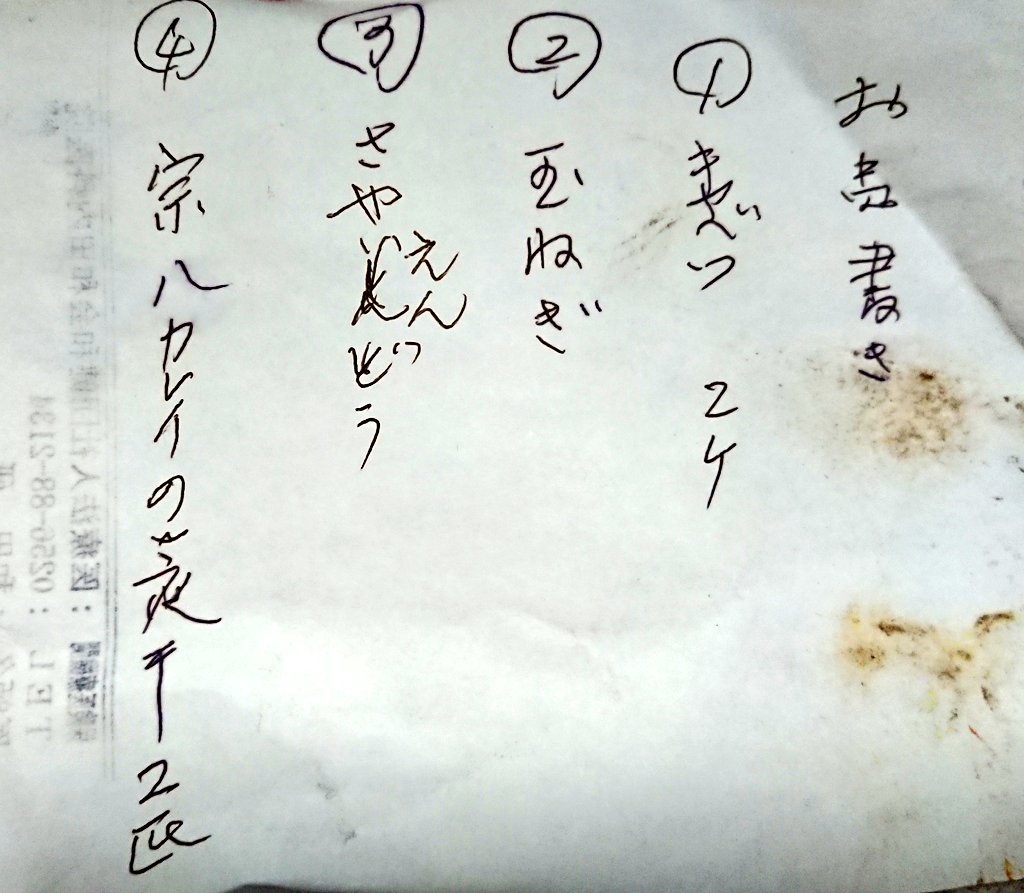 お品書き
① きゃべつ 2ケ
② 玉ねぎ
③ さやえんどう
④ 宗八カレイの夜干2匹
TEL：0256-88-2134